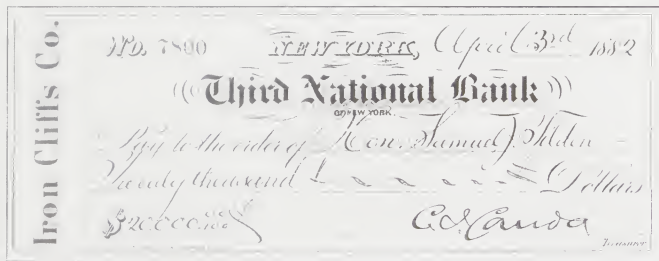 Iron Cliffs Co.
No. 7800 NEW YORK, April 3rd 1882
Third National Bank
OF NEW YORK.
Pay to the order of Hon. Samuel J. Tilden
Twenty thousand Dollars
$20.000.00/100
C. J. Canda
Treasurer